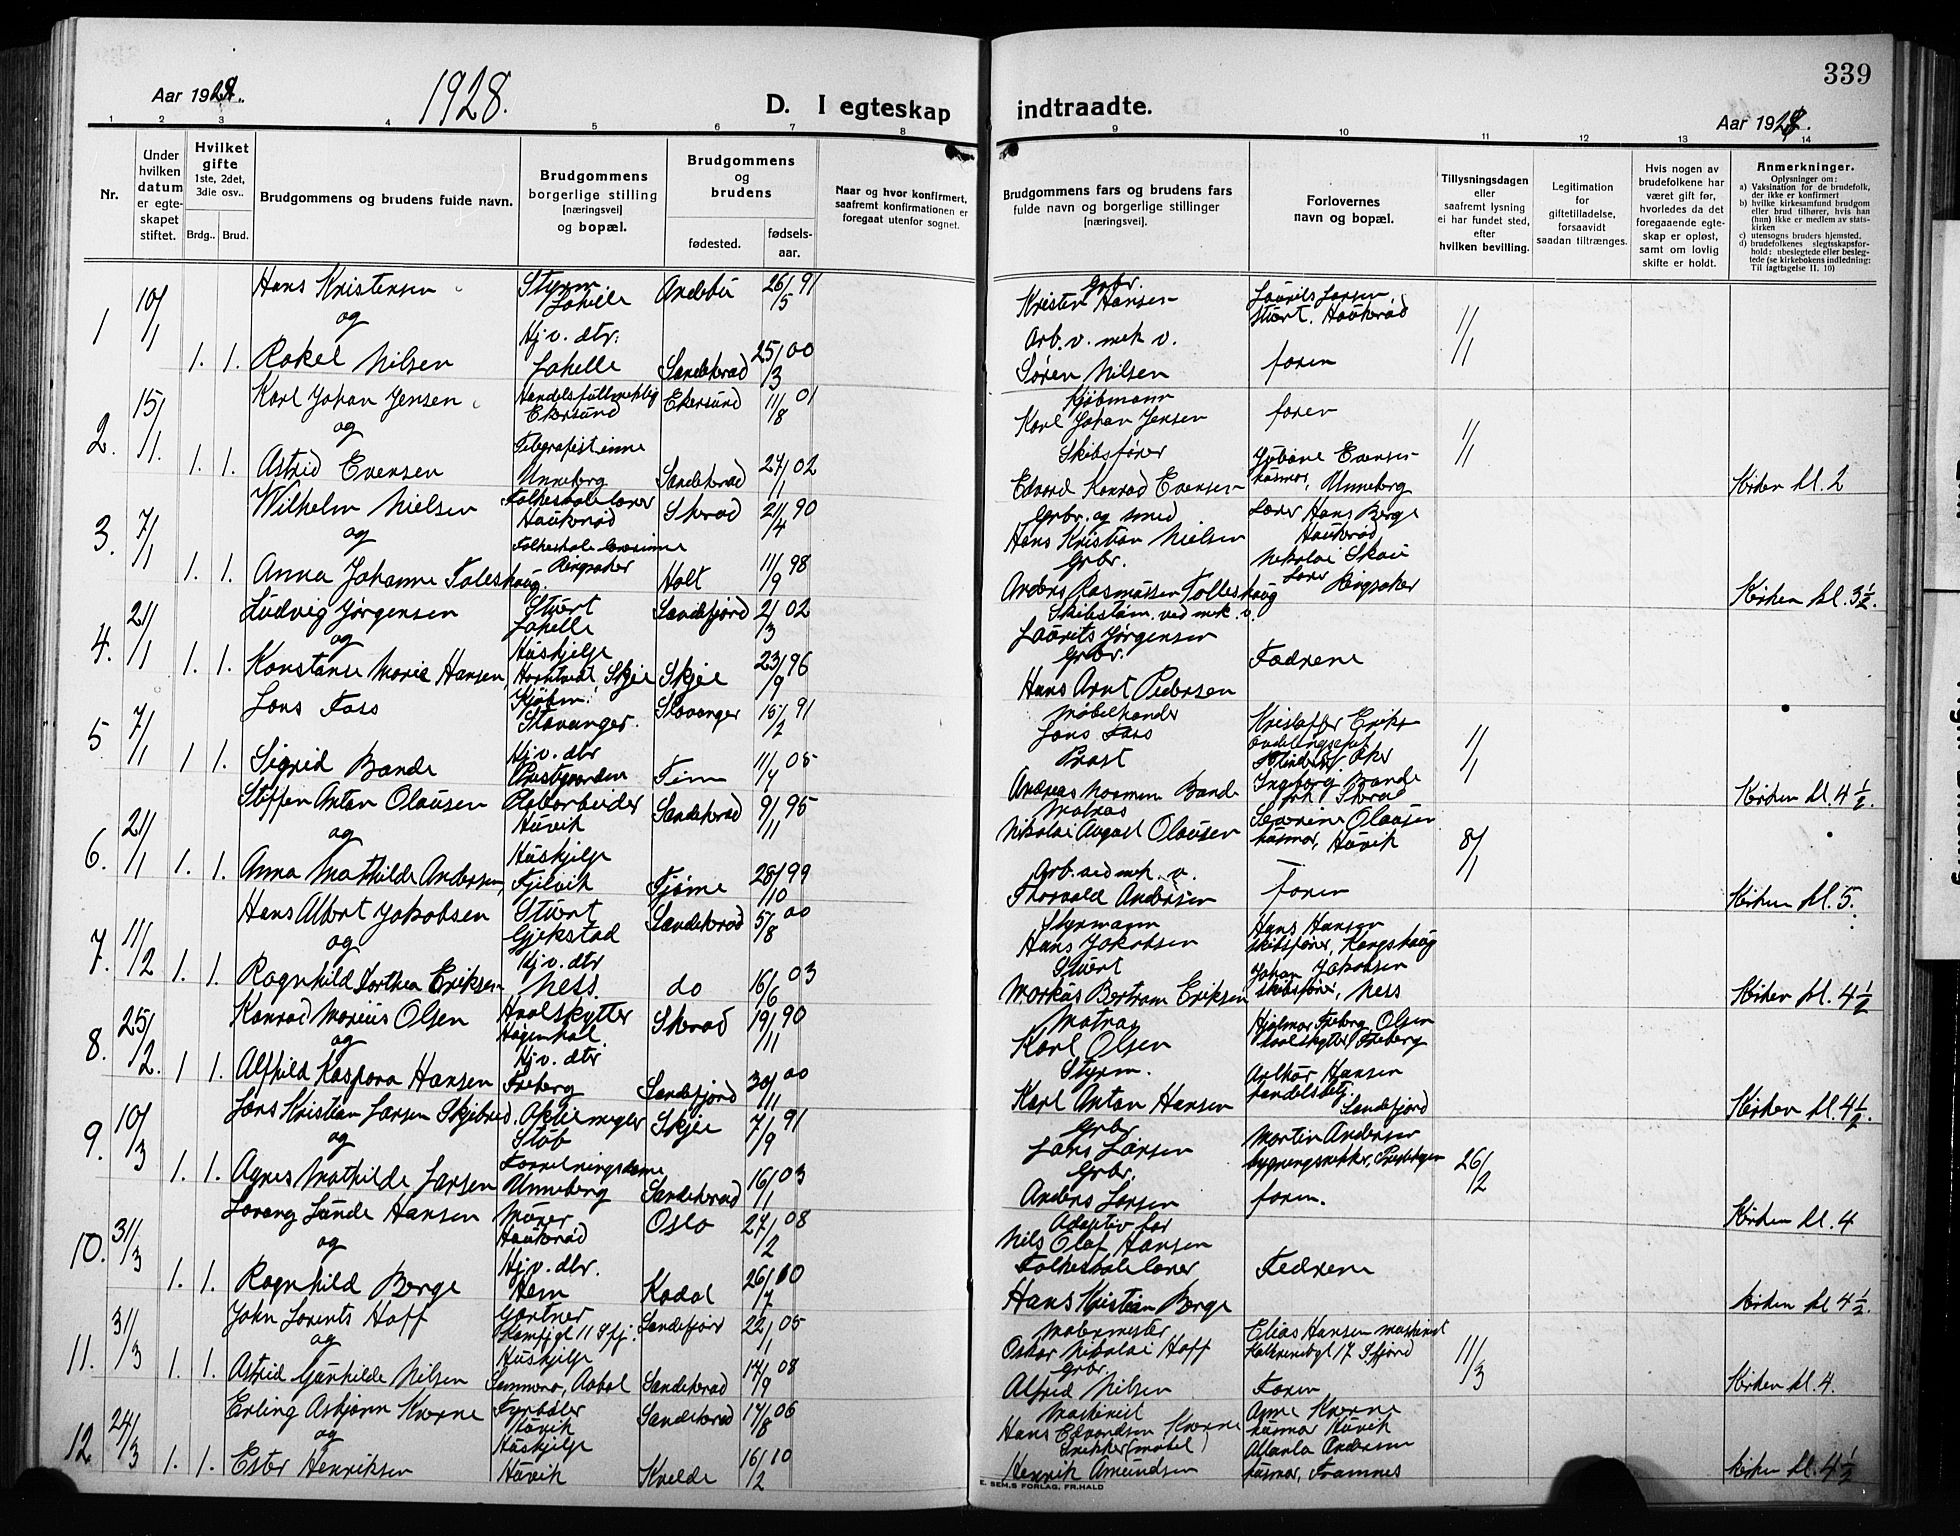 339
Aar 1928.
1928.
D. I egteskap indtraadte.
Aar 1928.
1 2 3 4 5 6 7 8 9 10 11 12 13 14
Nr.
Under hvilken datum er egteskapet stiftet.
Hvilket gifte
1ste, 2det, 3die osv..
Brdg.. Brud.
Brudgommens og brudens fulde navn.
Brudgommens borgerlige stilling
[næringsvei]
og bopæl.
Brudgommens og brudens
fødested.
fødselsaar.
Naar og hvor konfirmert, saafremt konfirmationen er foregaat utenfor sognet.
Brudgommens fars og brudens fars fulde navn og borgerlige stillinger
[næringsvei].
Forlovernes navn og bopæl.
Tillysningsdagen eller saafremt lysning ei har fundet sted, efter hvilken bevilling.
Legitimation for giftetilladelse, forsaavidt saadan tiltrænges.
Hvis nogen av brudefolkene har været gift før, hvorledes da det foregaaende egteskap er opløst, samt om lovlig skifte er holdt.
Anmerkninger.
Oplysninger om:
a) Vaksination for de brudefolk, der ikke er konfirmert
b) hvilke kirkesamfund brudgom eller brud tilhører, hvis han (hun) ikke er medlem av statskirken
c) utensogns bruders hjemsted.
d) brudefolkenes slegtsskapsforhold: ubeslegtede eller beslegtede (se kirkebokens indledning: Til iagttagelse II. 10)
1 10/1 Hans Kristensen Styrm Jahelle Andebu 26/5 91 Grbr. Kristen Hansen Laurits Larsen Stuert. Haukerød 1/1
og
1. 1. Rakel Nilsen Hj. v. dtr. Jahelle Sandeherad 25/3 00 Arb. v. mek v. Søren Nilsen faren
2. 15/1 Karl Johan Jensen Handelsfullmektig Ekersund Ekersund 11/8 01 Kjøbmann Karl Johan Jensen faren 1/1
og
1. 1. Astrid Evensen Telegrafistinne Unneberg Sandeherad 27/1 02 Skibsfører Edvard Konrad Evensen Evensen husmor, Unneberg Kirken kl. 2
3. 7/1 Wilhelm Nielsen Folkeskolelærer Haukerød Skerad 21/4 90 Grbr. og smed Hans Kristian Nielsen Lærer Hans Berge Haukerød
og
1. 1. Anna Johanne Toleshaug Folkeskolelærerinne Ringsaker Holt 11/9 98 Grbr. Anders Rasmussen Tolleshaug Nikolai Skau Lærer Ringsaker Kirken kl. 3½.
4. 21/1 Ludvig Jørgensen Stuert Jahelle Sandefjord 21/3 02 Skibstøm. ved mek. v. Laurits Jørgensen
og
1. 1. Konstanse Marie Hansen, Hushjelp Skjee Skjee 23/9 96 Grbr. Hans Arnt Pedersen Fædrene
5 7/1 Lars Foss Kjøbm. Stavanger. Stavanger 15/2 91 Møbelhandler Lars Foss Kristoffer 1/1
1 1. Sigrid Bande Hj. v. dtr Prestgaarden Time 11/4 05 Prost Andreas Bande Ingeborg Bande Kirken kl. 4½.
6. 21/1 Steffen Anton Olausen Huvik Sandeherad 9/11 95 Matros Nikolai August Olausen Severine Olausen husmor, Huvik 8/1
og
1. 1. Anna Mathilde Andersen, Hushjelp Tjøme 28/10 99 Arb. ved mek. v. Thorvald Andersen faren Kirken kl. 5.
7. 11/2 Hans Albert Jakobsen Stuert Gjekstad Sandeherad 5/8 00 Styrmann Hans Jakobsen Hans Hansen skibsfører, Kongshaug
og
1. 1. Ragnhild Dorthea Eriksen Hj. v. dtr Ness. do 16/6 03 Stuert Markus Bertram Eriksen Johan Jakobsen skibsfører, Ness Kirken kl. 4½
8. 25/12. Konrad Marius Olsen Hvalskytter Skerad 19/11 90 Matros Karl Olsen Hjalmar Freberg Olsen hvalskytter Freberg
og
1 1. Alfhild Kaspara Hansen Hj. v. dtr Freberg Sandefjord 30/11 00 Styrm. Karl Anton Hansen Arthur Hansen Sandefjord Kirken kl. 4½
9. 10/3 Lars Kristian Larsen Skjebred. Aktiemegler Støb Skjee 7/9 91 Grbr Lars Larsen Martin Andersen 26/2
og
1. 1. Agnes Mathilde Larsen Unneberg Sandeherad 16/1 03 Grbr. Anders Larsen faren. Kirken kl. 4
10. 31/3 Lorang Lunde Hansen Murer Haukerød Oslo 27/2 08 Adoptiv far Nils Olaf Hansen
og
1. 1. Ragnhild Berge Hj. v. dtr. Hem Kodal 26/7 00 Folkeskolelærer Hans Kristian Berge Fedrene Kirken kl 4½.
11. 31/3 John Lorents Hoff Gartner Sandefjord 22/1 05 Malermester Oskar Nikolai Hoff Elias Hansen maskinist 11/3
og
1. 1. Astrid Gunhilde Nilsen Hushjelp Sandeherad 14/9 08 Grbr. Alfred Nilsen Faren Kirken kl. 4.
12. 24/3 Erling Asbjørn Kverne Fyrbøter Huvik Sandeherad 14/8 06 Maskinist Hans Edvardsen Kverne Anne Kverne husmor Huvik
og
1. 1. Ester Henriksen Hushjelp Huvik Kvelde 16/2 10 Snekker (møbel) Henrik Amundsen Andersen husmor, Framnes Kirken kl. 4½
E. SEM,S FORLAG, FR.HALD